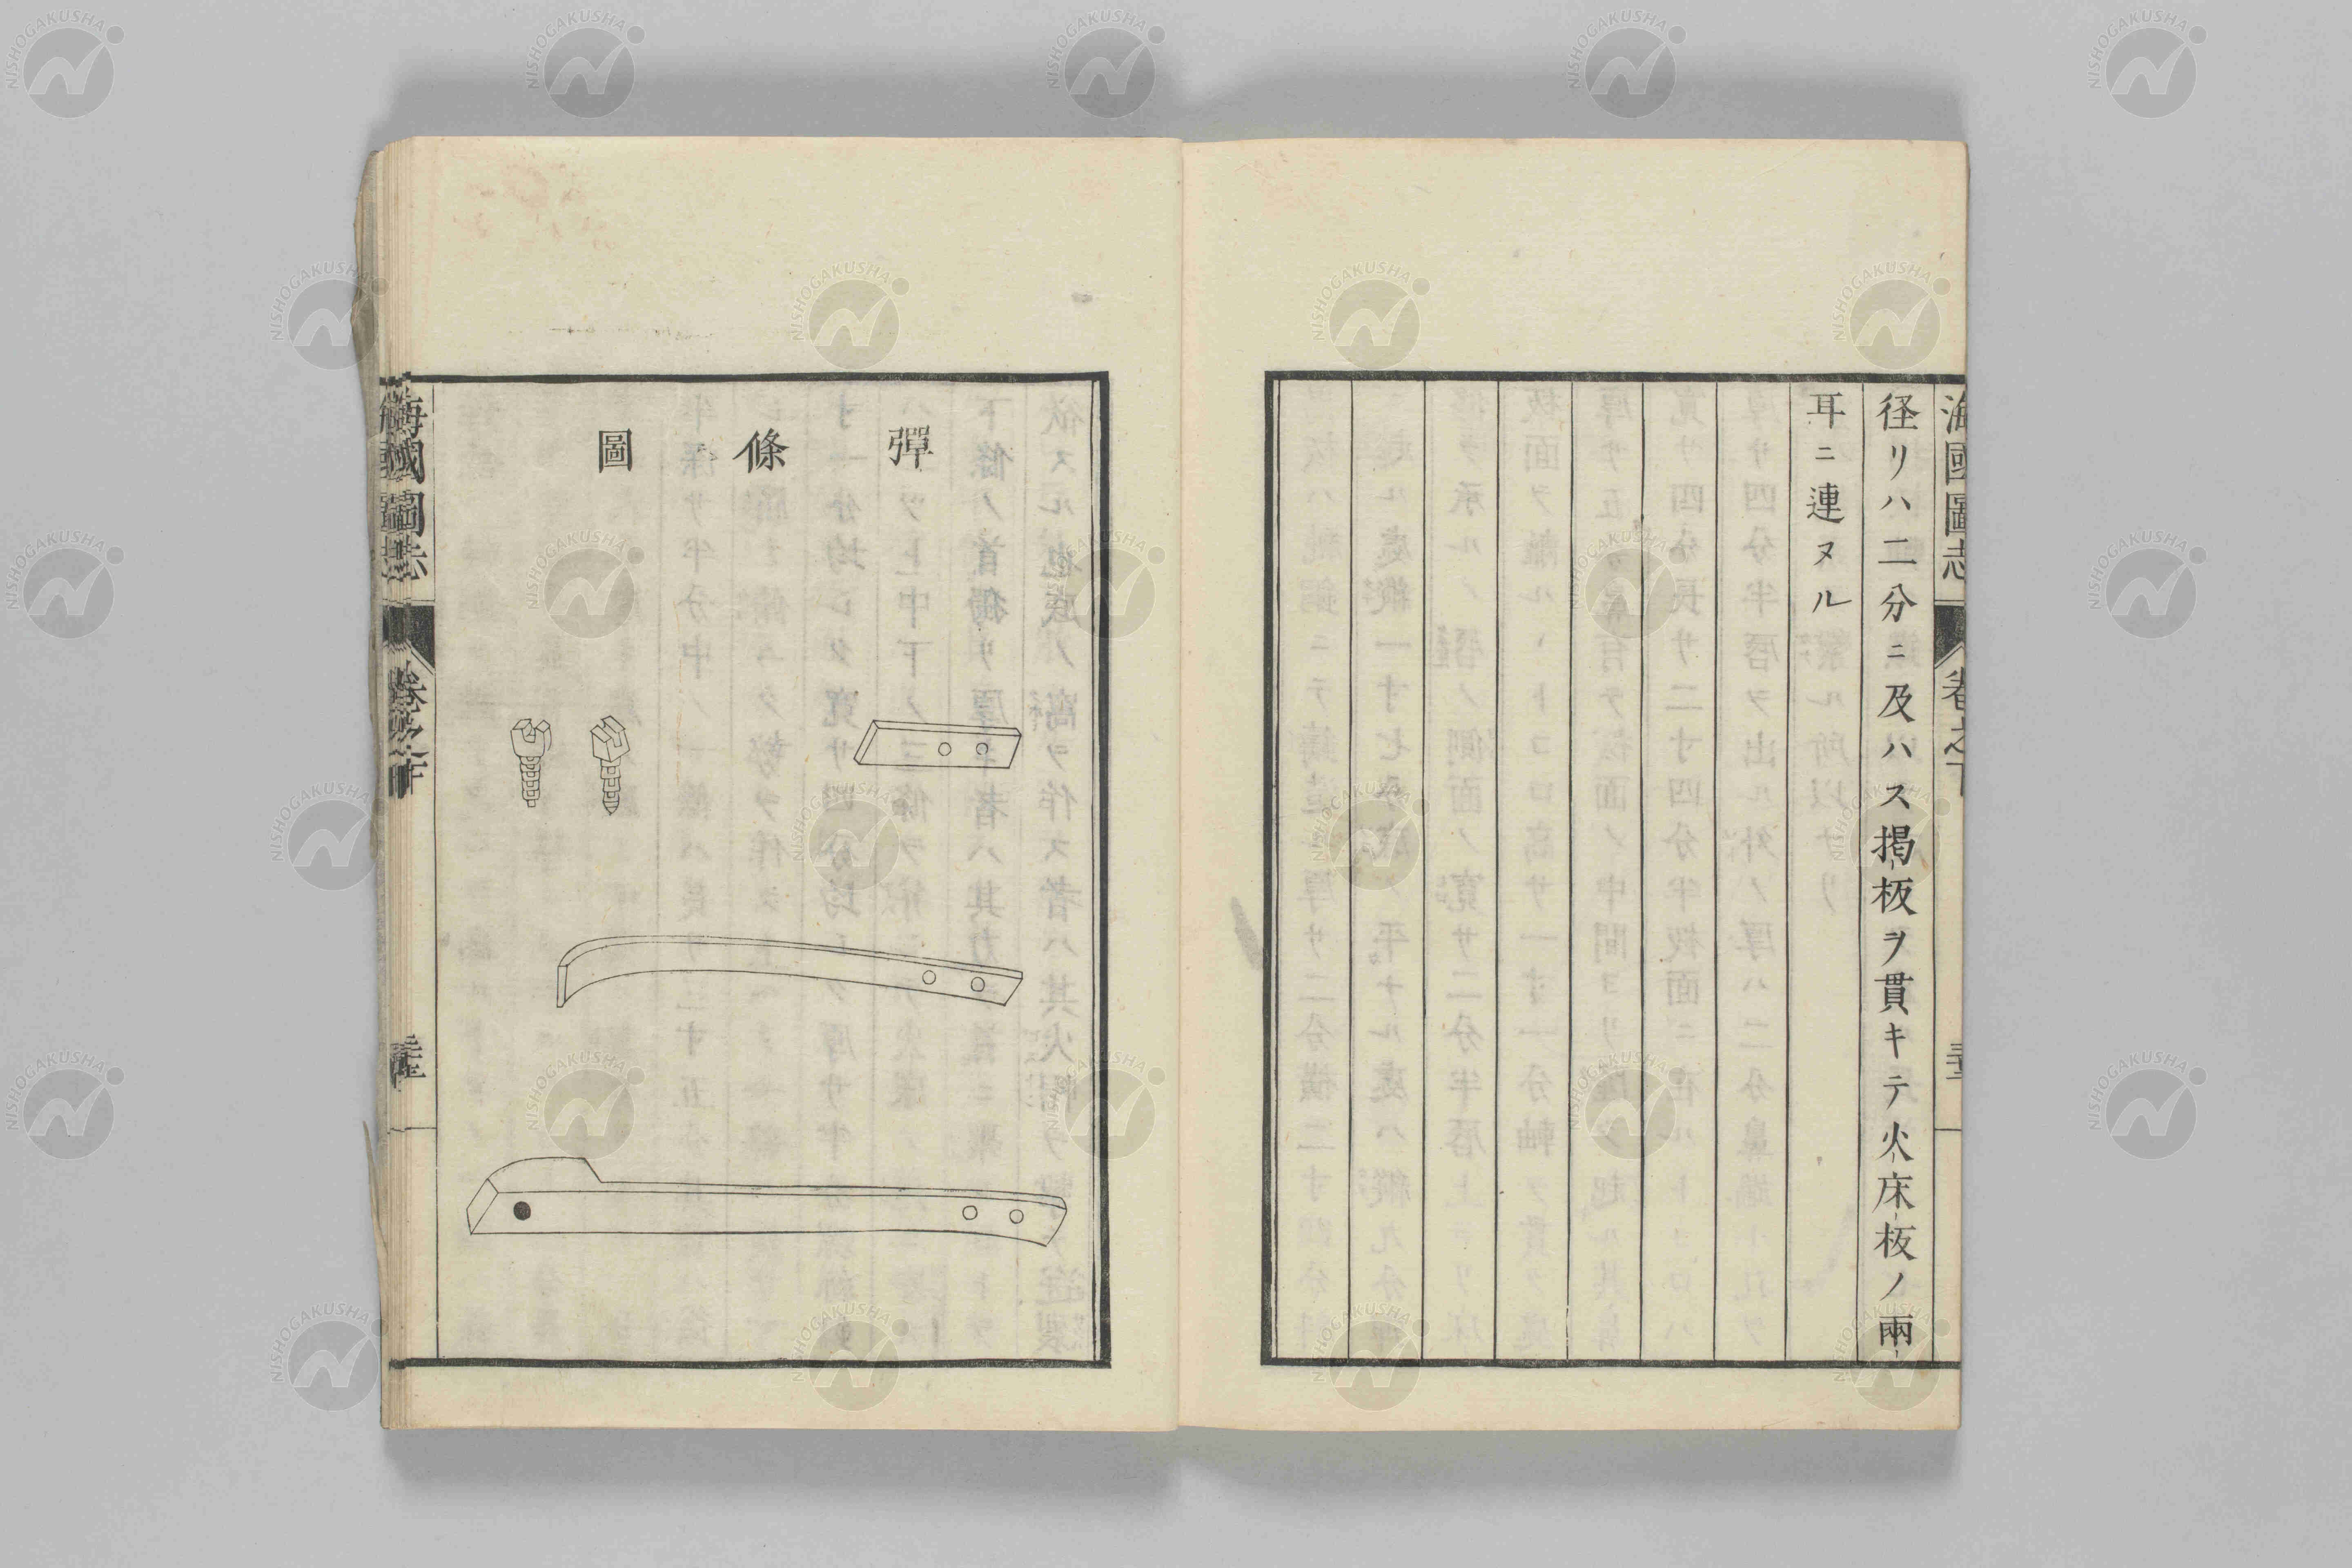 海國圖志
卷之下
径リハ二分ニ及ハス掲板ヲ貫キテ火床板ノ兩
耳ニ連ヌル
彈條圖
海國圖志
NISHOGAKUSHA